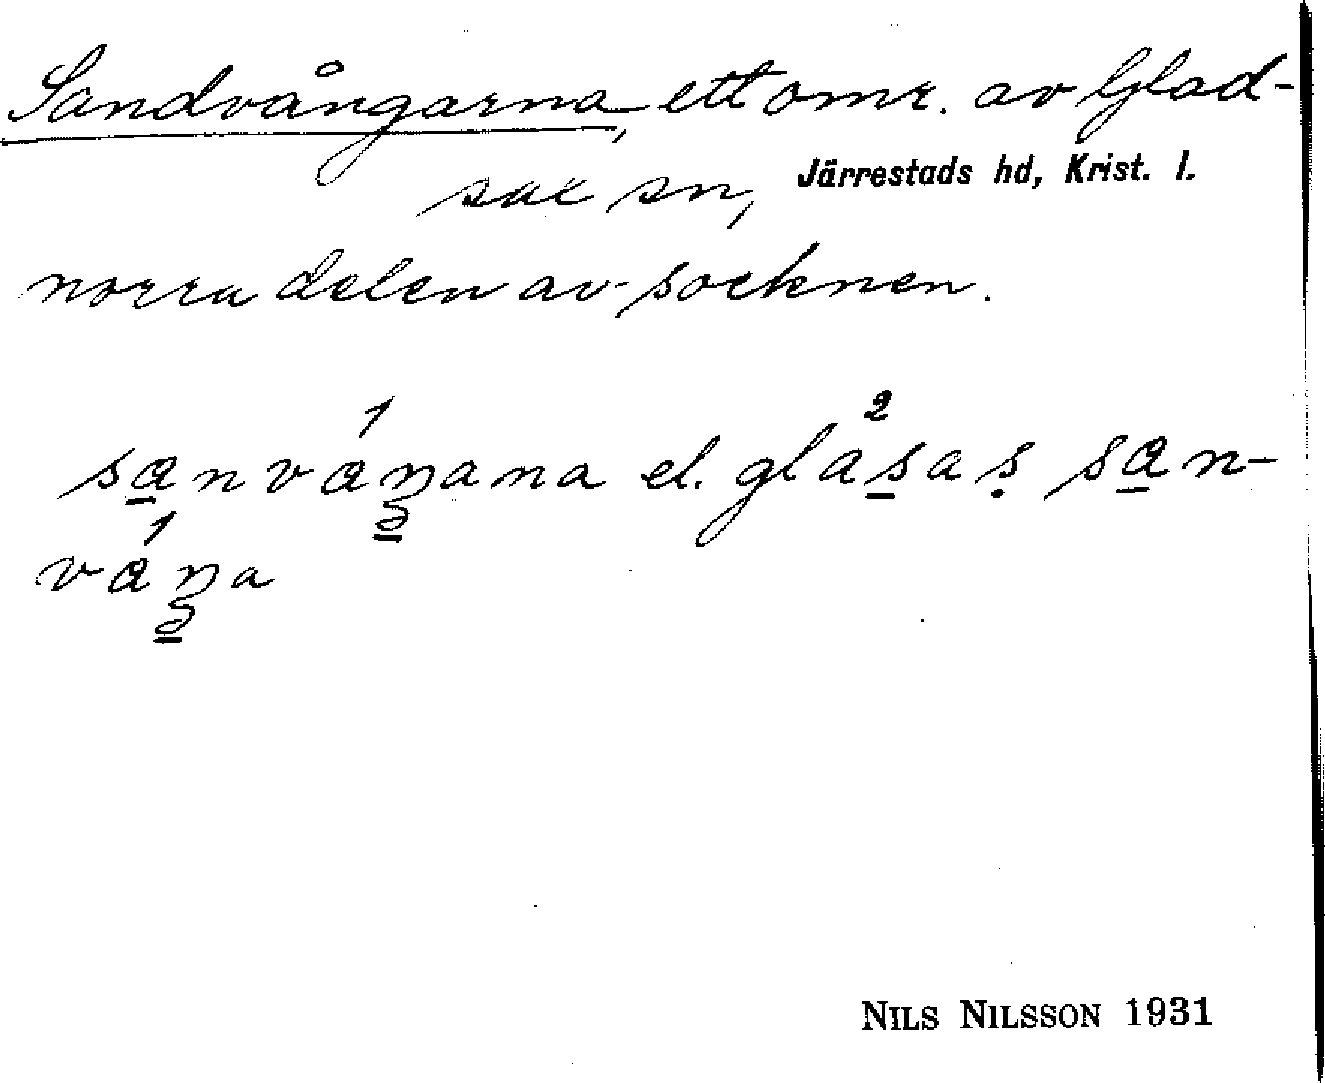 Sandvångarna, ett omr. av Glad-
sax sn, Järrestads hd, Krist. l.
norra delen av socknen.
sanváŋana el. glàsas san-
váŋa
NILS NILSSON 1931